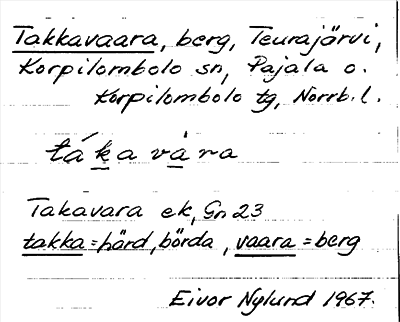 Takkavaara, berg, Teurajärvi,
Korpilombolo sn, Pajala o.
Korpilombolo tg, Norrb. l.
tákavàra
Takavara ek, Gn 23
takka = härd, börda, vaara = berg
Eivor Nylund 1967.